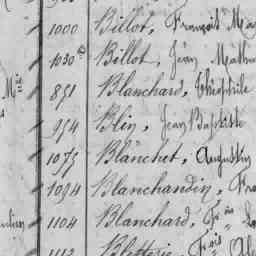 1000 Billot, François Ma
1030 Billot, Jean Mathi
851 Blanchard, Théophile
954 Blin, Jean Baptiste
1075 Blanchet, Augustin
1094 Blanchandin, Fra
1104 Blanchard, Frs
1113